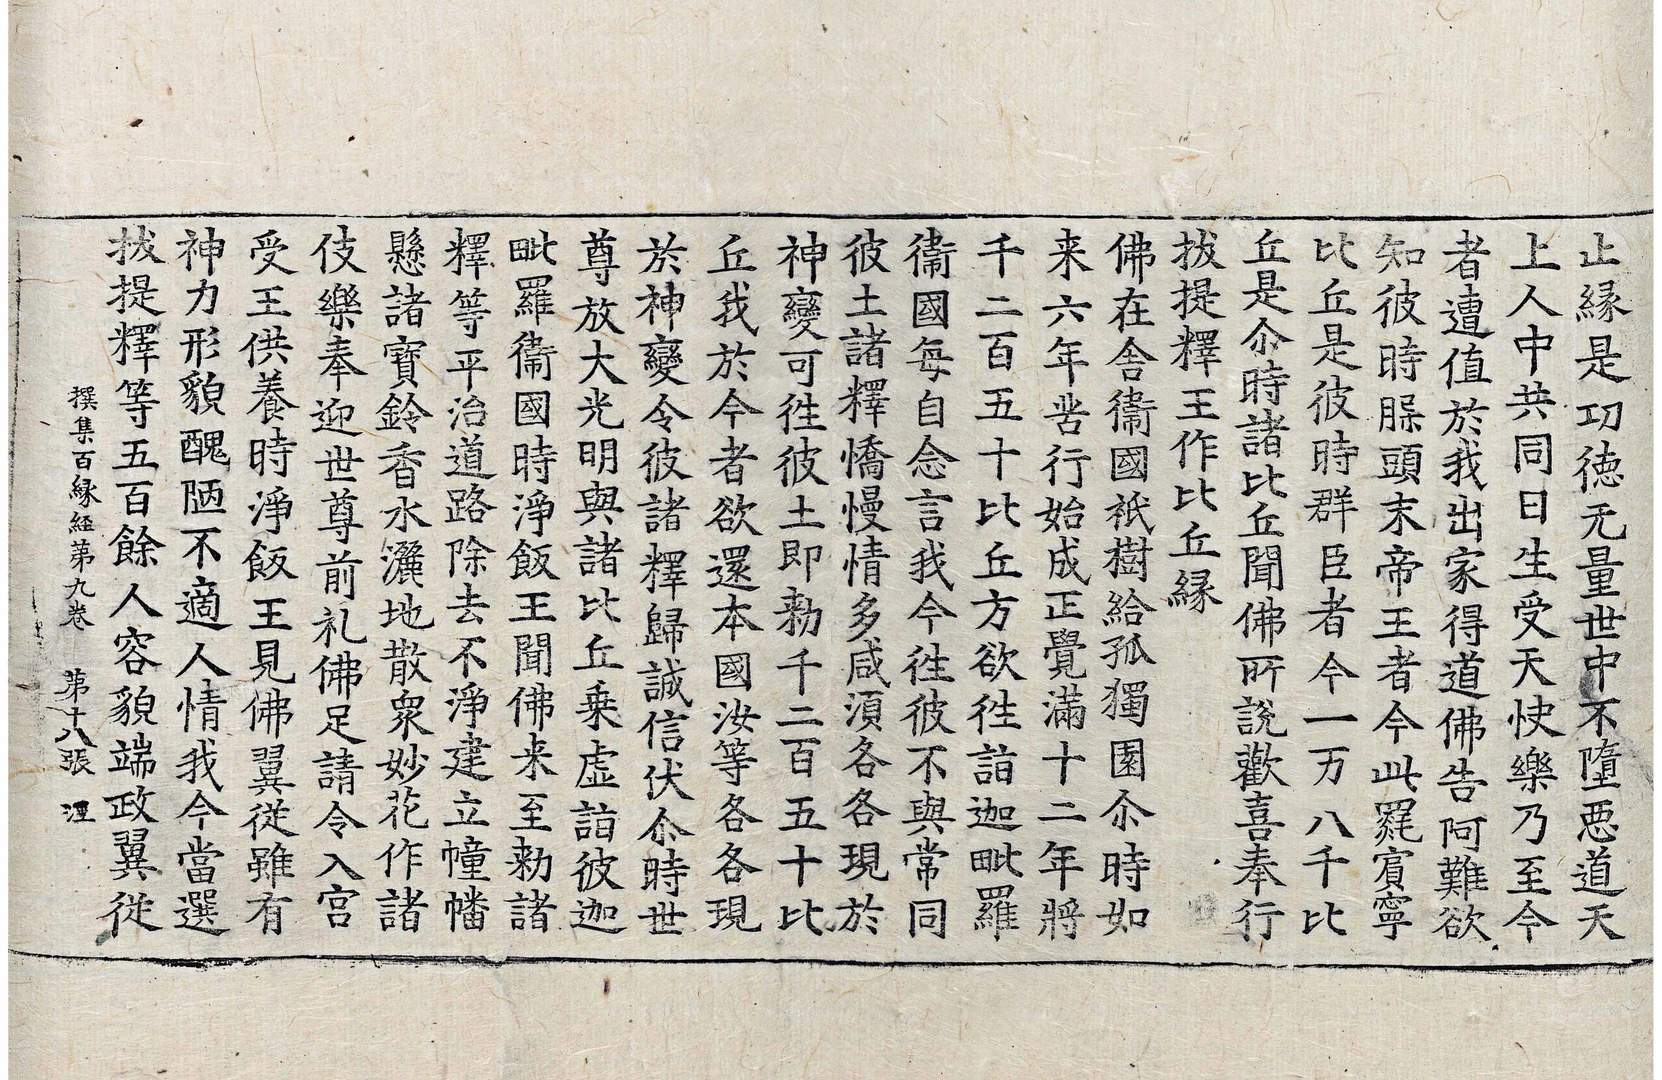 止緣是功徳无量世中不墮惡道天
上人中共同日生受天快樂乃至今
者遭值於我出家得道佛告阿難欲
知彼時臊頭末帝王者今此罽賓寧
比丘是彼時群臣者今一万八千比
丘是尒時諸比丘聞佛所說歡喜奉行
拔提釋王作比丘緣
佛在舍衞國祇樹給孤獨園尒時如
来六年苦行始成正覺滿十二年將
千二百五十比丘方欲徃詣迦毗羅
衞國每自念言我今徃彼不與常同
彼土諸釋憍慢情多咸湏各各現於
神變可徃彼土即勑千二百五十比
丘我於今者欲還本國汝等各各現
於神變令彼諸釋歸誠信伏尒時世
尊放大光明與諸比丘乗虛詣彼迦
毗羅衞國時淨飯王聞佛来至勑諸
釋等平治道路除去不淨建立幢幡
懸諸寶鈴香水灑地散衆妙花作諸
伎樂奉迎世尊前礼佛足請令入宫
受王供養時淨飯王見佛翼從雖有
神力形貌醜陋不適人情我今當選
拔提釋等五百餘人容貌端政翼從
撰集百緣經第九卷 第十八張 涇